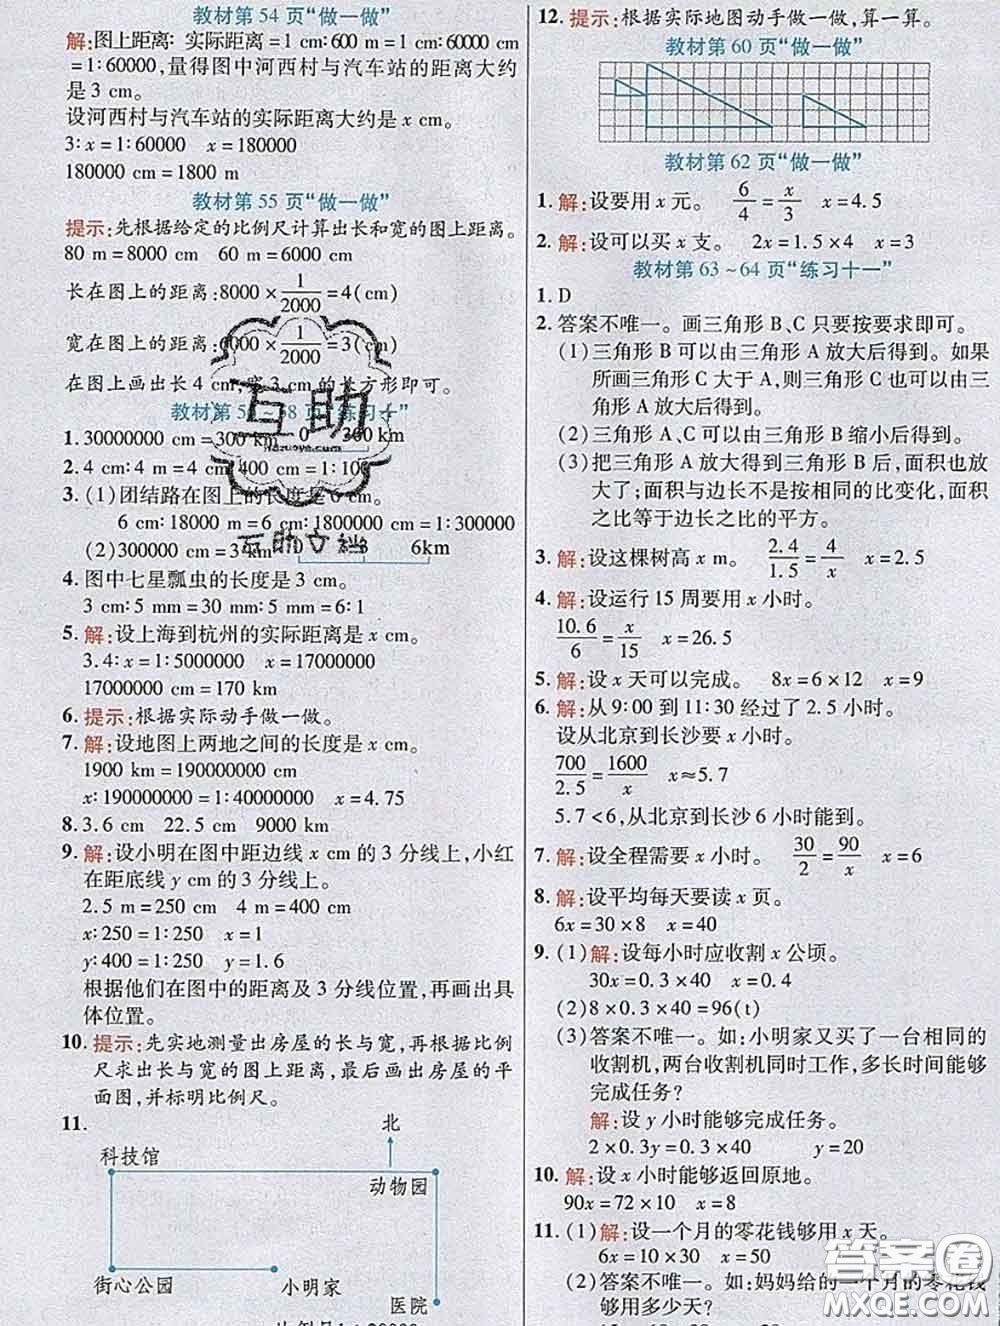 教材第 54 页“做一做”
解:图上距离: 实际距离=1 cm:600 m=1 cm:60000 cm
=1:60000,量得图中河西村与汽车站的距离大约
是 3 cm。
设河西村与汽车站的实际距离大约是 x cm。
3:x=1:60000 x=180000
180000 cm=1800 m
教材第 55 页“做一做”
提示:先根据给定的比例尺计算出长和宽的图上距离。
80 m=8000 cm 60 m=6000 cm
长在图上的距离:8000×1/2000=4(cm)
宽在图上的距离:6000×1/2000=3(cm)
在图上画出长 4 cm,宽 3 cm 的长方形即可。
教材第 56~58 页“练习十”
1. 30000000 cm=300 km 0 300 km
2. 4 cm:4 m=4 cm:400 cm=1:100
3. (1)团结路在图上的长度是 6 cm。
6 cm:18000 m=6 cm:1800000 cm=1:300000
(2)300000 cm=3 km 0 3 6km
4. 图中七星瓢虫的长度是 3 cm。
3 cm:5 mm=30 mm:5 mm=6:1
5. 解:设上海到杭州的实际距离是 x cm。
3.4:x=1:5000000 x=17000000
17000000 cm=170 km
6. 提示:根据实际动手做一做。
7. 解:设地图上两地之间的长度是 x cm。
1900 km=190000000 cm
x:190000000=1:40000000 x=4.75
8. 3.6 cm 22.5 cm 9000 km
9. 解:设小明在图中距边线 x cm 的 3 分线上,小红
在距底线 y cm 的 3 分线上。
2.5 m=250 cm 4 m=400 cm
x:250=1:250 x=1
y:400=1:250 y=1.6
根据他们在图中的距离及 3 分线位置,再画出具
体位置。
10. 提示:先实地测量出房屋的长与宽,再根据比例
尺求出长与宽的图上距离,最后画出房屋的平
面图,并标明比例尺。
11. 北
科技馆
动物园
街心公园 小明家
医院
12. 提示:根据实际地图动手做一做,算一算。
教材第 60 页“做一做”
教材第 62 页“做一做”
1. 解:设要用 x 元。 6/4=x/3 x=4.5
2. 解:设可以买 x 支。 2x=1.5×4 x=3
教材第 63~64 页“练习十一”
1. D
2. 答案不唯一。画三角形 B、C 只要按要求即可。
(1)三角形 B 可以由三角形 A 放大后得到。如果
所画三角形 C 大于 A,则三角形 C 也可以由三角
形 A 放大后得到。
(2)三角形 A、C 可以由三角形 B 缩小后得到。
(3)把三角形 A 放大得到三角形 B 后,面积也放
大了;面积与边长不是按相同的比变化,面积
之比等于边长之比的平方。
3. 解:设这棵树高 x m。 2.4/1.5=4/x x=2.5
4. 解:设运行 15 周要用 x 小时。
10.6/6=x/15 x=26.5
5. 解:设 x 天可以完成。 8x=6×12 x=9
6. 解:从 9:00 到 11:30 经过了 2.5 小时。
设从北京到长沙要 x 小时。
700/2.5=1600/x x≈5.7
5.7<6,从北京到长沙 6 小时能到。
7. 解:设全程需要 x 小时。 30/2=90/x x=6
8. 解:设平均每天要读 x 页。
6x=30×8 x=40
9. (1)解:设每小时应收割 x 公顷。
30x=0.3×40 x=0.4
(2)8×0.3×40=96(t)
(3)答案不唯一。如:小明家又买了一台相同的
收割机,两台收割机同时工作,多长时间能够
完成任务?
解:设 y 小时能够完成任务。
2×0.3y=0.3×40 y=20
10. 解:设 x 小时能够返回原地。
90x=72×10 x=8
11. (1)解:设一个月的零花钱够用 x 天。
6x=10×30 x=50
(2)答案不唯一。如:妈妈给的一个月的零花钱
够用多少天?
互助
互助文档
答案圈
MXQE.COM